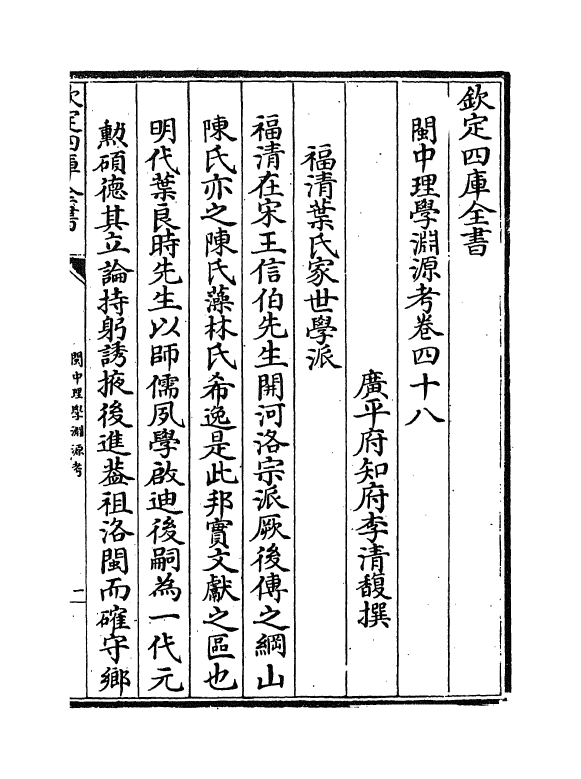 欽定四庫全書
閩中理學淵源考卷四十八
廣平府知府李清馥撰
福清葉氏家世學派
福清在宋王信伯先生開河洛宗派厥後傳之綱山
陳氏亦之陳氏藻林氏希逸是此邦實文獻之區也
明代葉良時先生以師儒夙學啟迪後嗣為一代元
勲碩德其立論持躬誘掖後進葢祖洛閩而確守鄉
欽定四庫全書
閩中理學淵源考